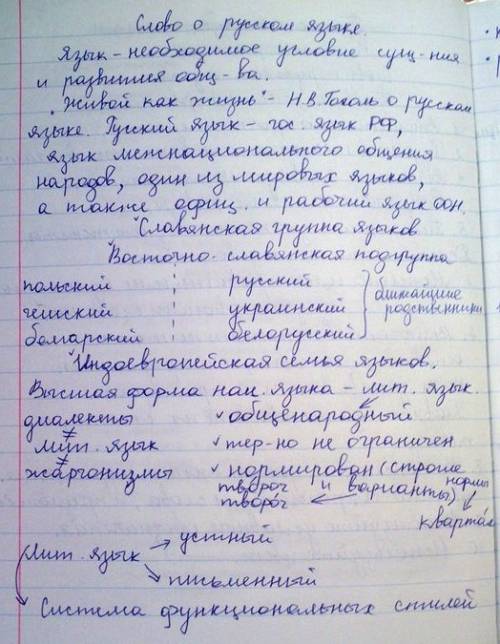 Слово о русском языке.
Язык – необходимое условие сущ-ния
и развития общ-ва.
"Живой как жизнь" – Н.В. Гоголь о русском
языке. Русский язык – гос. язык РФ,
язык межнационального общения
народов, один из мировых языков,
а также офиц. и рабочий язык ООН.
Славянская группа языков
Восточно-славянская подгруппа
польский русский ближайшие
чешский украинский родственники
болгарский белорусский
Индоевропейская семья языков.
Высшая форма нац. языка – лит. язык.
диалекты ✓ общенародный
≠
лит. язык ✓ тер-но не ограничен
≠
жаргонизмы ✓ нормирован (строгие нормы
творо́г и варианты)
тво́рог ← кварта́л
Лит. язык → устный
→ письменный
Система функциональных стилей